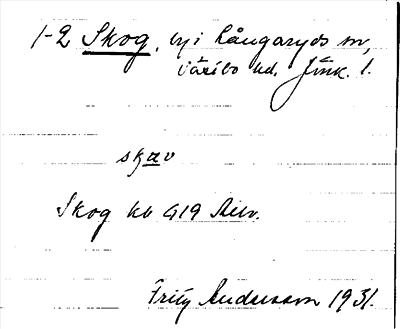 1-2 Skog, by i Långaryds sn,
Västbo hd. Jönk. l.
skav
Skog kb 419
Fritz Andersson 1931.